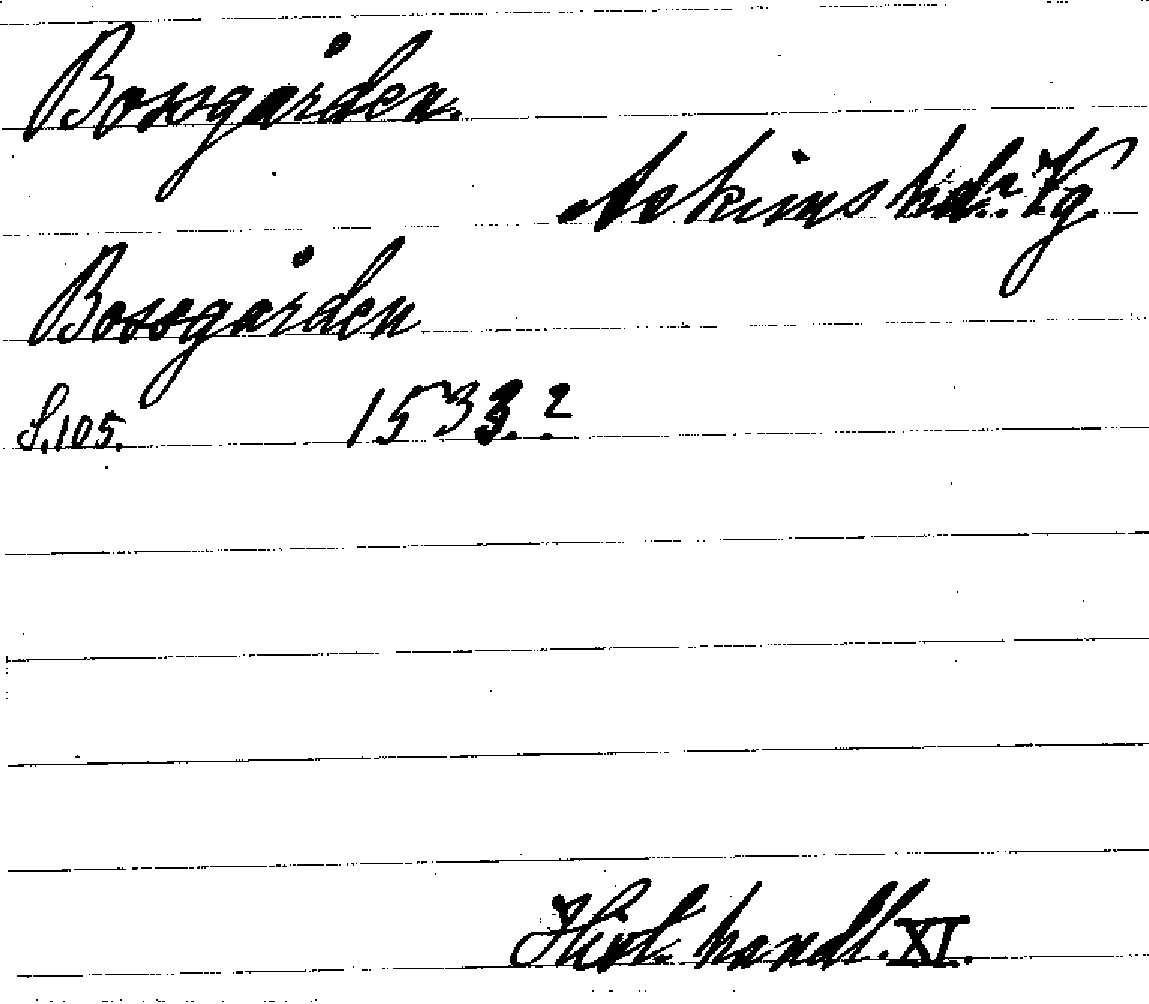 Bossgården.
Askims hd. Vg
Bossgården
S. 105. 1533.?
Hist. handl. XI.